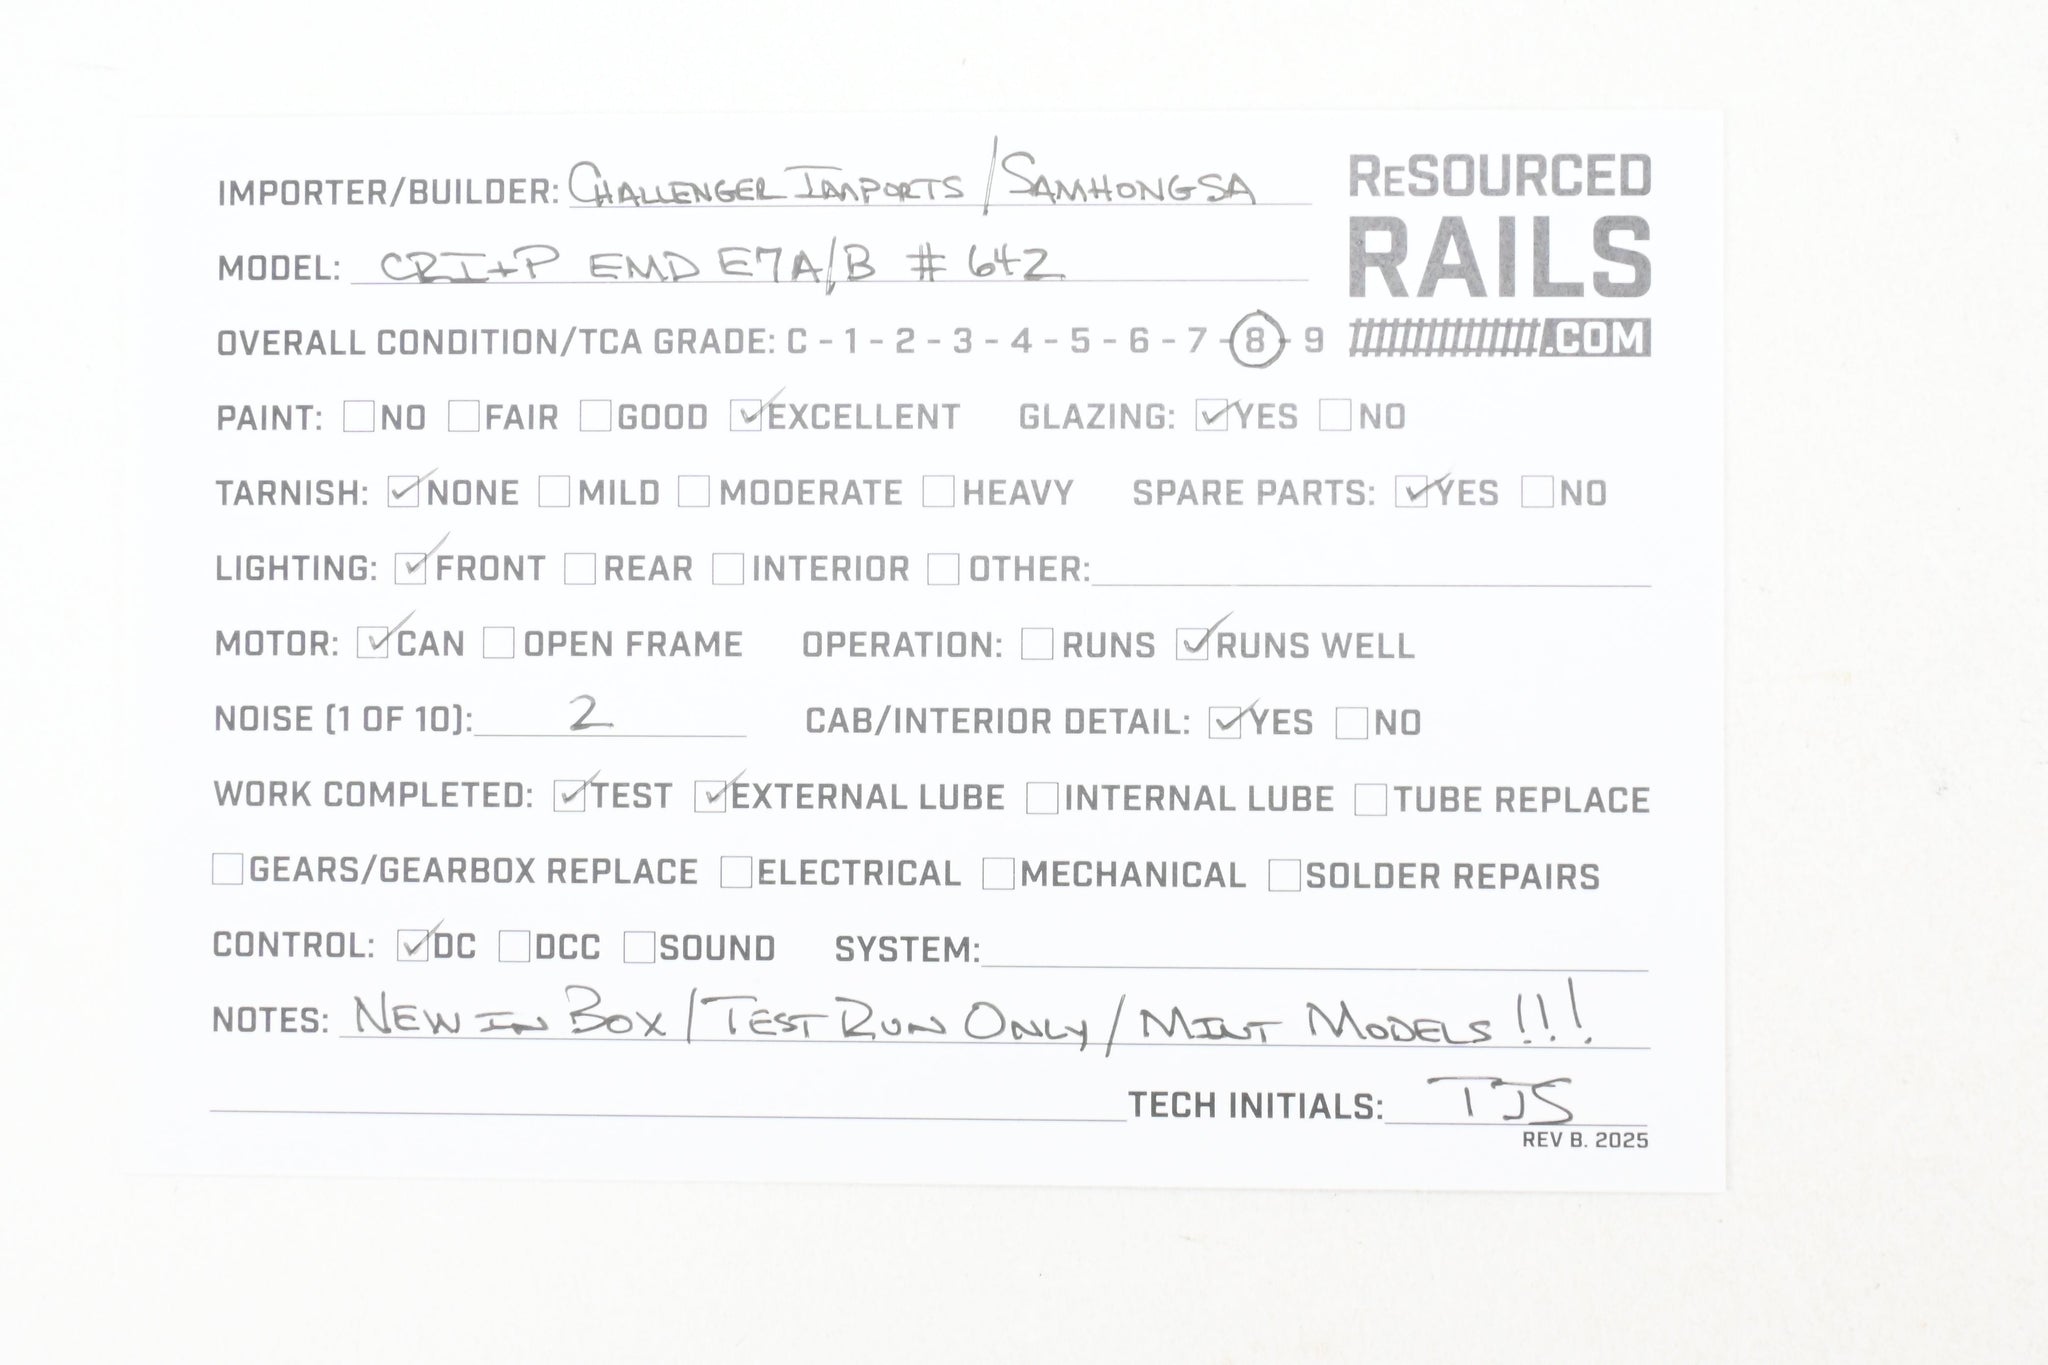 IMPORTER/BUILDER: CHALLENGER IMPORTS / SAMHONGSA
RESOURCED
RAILS
.COM
MODEL: CRI+P EMD E7A/B # 642
OVERALL CONDITION/TCA GRADE: C - 1 - 2 - 3 - 4 - 5 - 6 - 7 - 8 - 9
PAINT: NO FAIR GOOD EXCELLENT GLAZING: YES NO
TARNISH: NONE MILD MODERATE HEAVY SPARE PARTS: YES NO
LIGHTING: FRONT REAR INTERIOR OTHER:
MOTOR: CAN OPEN FRAME OPERATION: RUNS RUNS WELL
NOISE (1 OF 10): 2 CAB/INTERIOR DETAIL: YES NO
WORK COMPLETED: TEST EXTERNAL LUBE INTERNAL LUBE TUBE REPLACE
GEARS/GEARBOX REPLACE ELECTRICAL MECHANICAL SOLDER REPAIRS
CONTROL: DC DCC SOUND SYSTEM:
NOTES: NEW IN BOX / TEST RUN ONLY / MINT MODELS!!!
TECH INITIALS: TJS
REV B. 2025